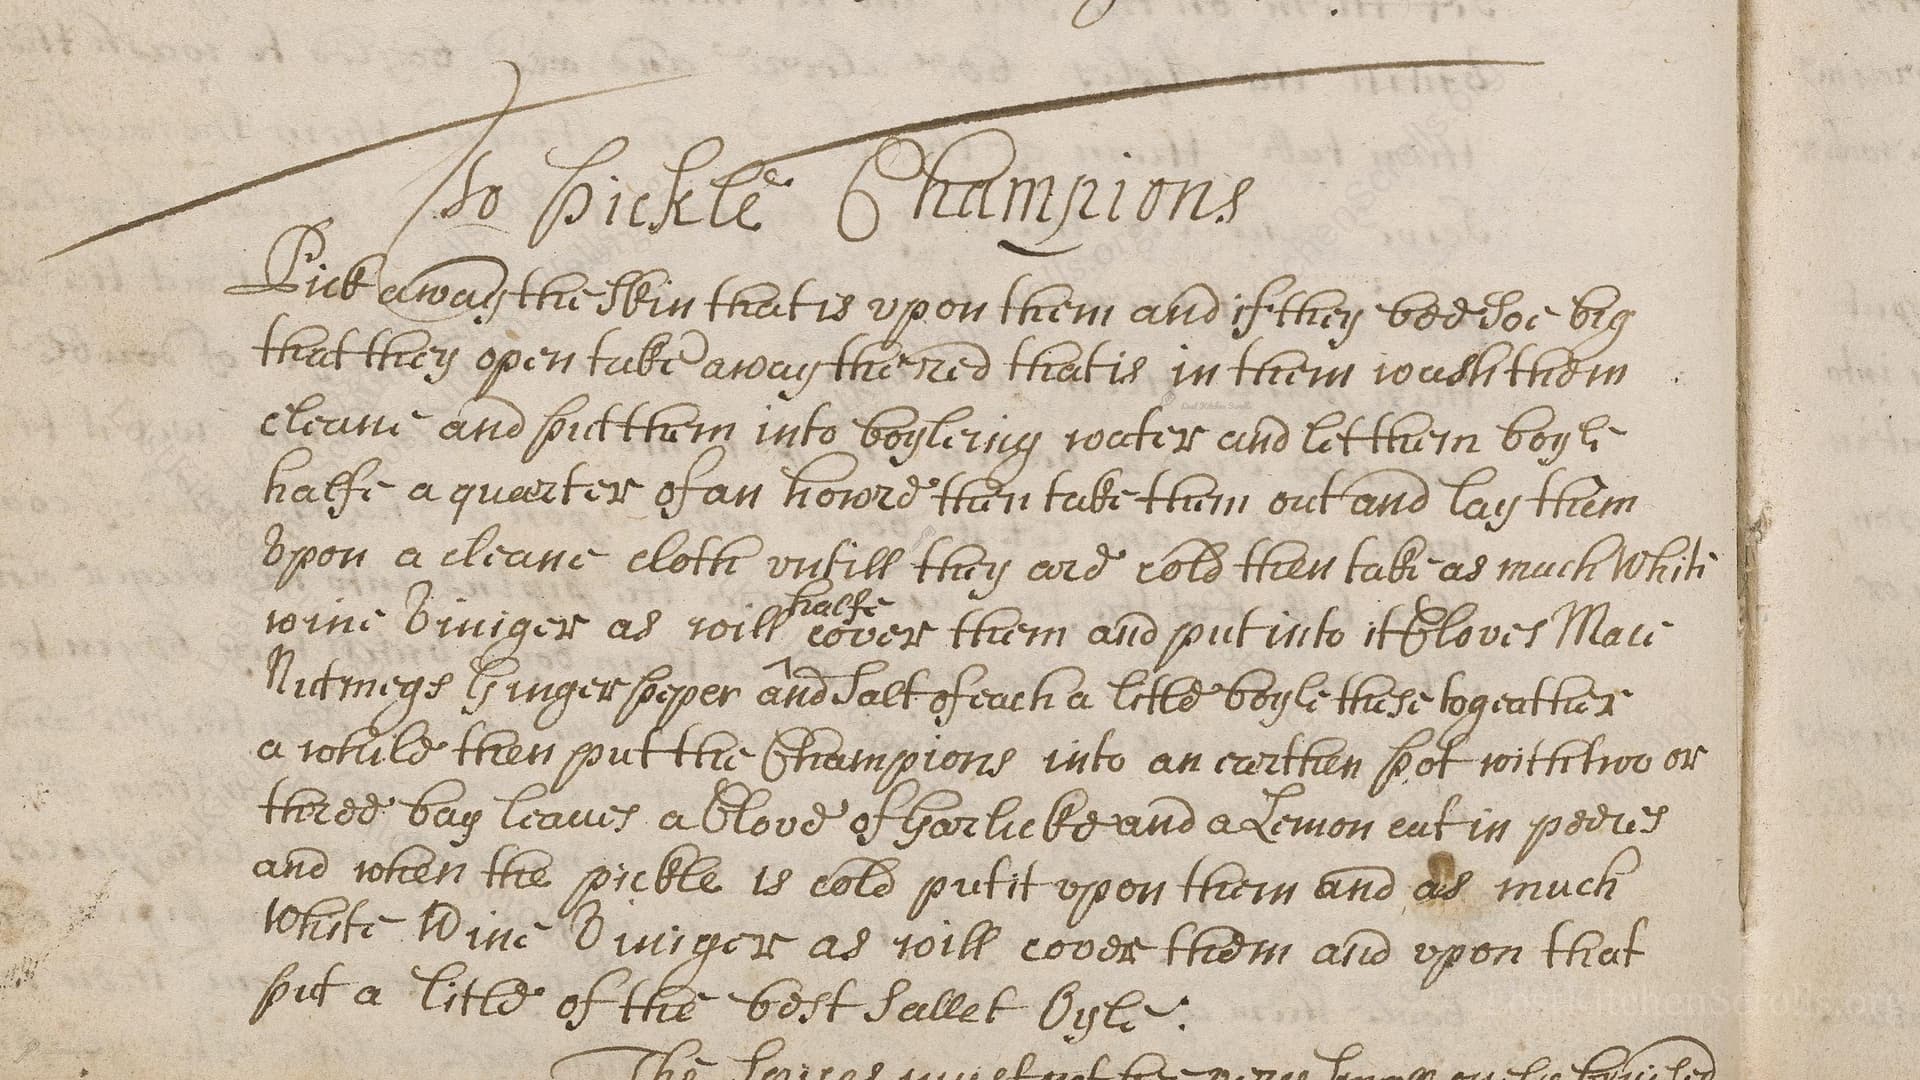 To Pickle Champions
Pick away the Skin that is upon them and if they bee Soe big
that they open take away the red that is in them wash them
cleane and put them into boyleing water and let them boyle
halfe a quarter of an howre then take them out and lay them
Vpon a cleane cloth vntill they are cold then take as much White
halfe
wine Viniger as will ^ cover them and put into it Cloves Mace
Nutmegs Ginger peper and Salt of each a litle boyle these togeather
a while then put the Champions into an earthen pot with two or
three bay leaues a Clove of Garlicke and a Lemon cut in peeces
and when the pickle is cold put it vpon them and as much
White Wine Viniger as will cover them and vpon that
put a litle of the best Sallet Oyle.
The
Lost Kitchen Scrolls
LostKitchenScrolls.org